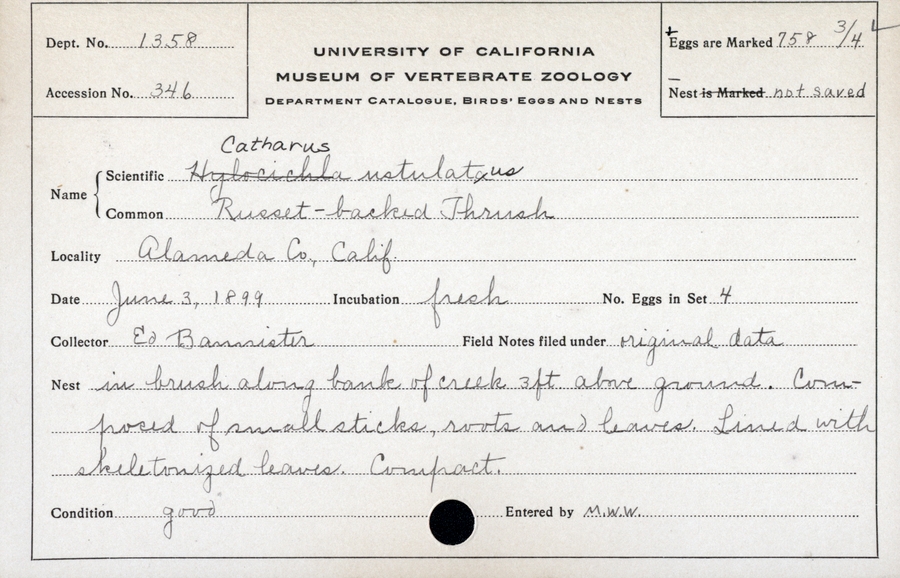 Dept. No. 1358
Accession No. 346
UNIVERSITY OF CALIFORNIA
MUSEUM OF VERTEBRATE ZOOLOGY
DEPARTMENT CATALOGUE, BIRDS' EGGS AND NESTS
Eggs are Marked 758 3/4
Nest is Marked not saved
Catharus
Name { Scientific Hylocichla ustulatus
Common Russet-backed Thrush
Locality Alameda Co., Calif.
Date June 3, 1899 Incubation fresh No. Eggs in Set 4
Collector Ed Bannister Field Notes filed under original data
Nest in brush along bank of creek 3ft above ground. Com-
posed of small sticks, roots and leaves. Lined with
skeletonized leaves. Compact.
Condition good Entered by M.W.W.